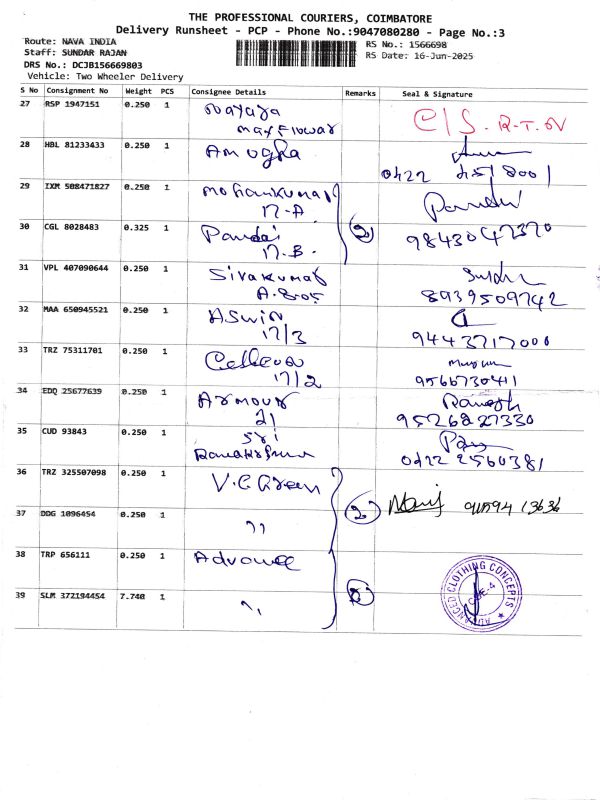 THE PROFESSIONAL COURIERS, COIMBATORE
Delivery Runsheet - PCP - Phone No.:9047080280 - Page No.:3
Route: NAVA INDIA
Staff: SUNDAR RAJAN
DRS No.: DCJB156669803
Vehicle: Two Wheeler Delivery
RS No.: 1566698
RS Date: 16-Jun-2025
S No Consignment No Weight PCS Consignee Details Remarks Seal & Signature
27 RSP 1947151 0.250 1 Nayaga
Max Flowar C/S. R.T.N
28 HBL 81233433 0.250 1 Amogha
0422 4518001
29 IXM 508471827 0.250 1 Mohankumar
17-A
30 CGL 8028483 0.325 1 Pandai
17.B. 2 9843047370
31 VPL 407090644 0.250 1 Sivakumar
A.805 8939509742
32 MAA 650945521 0.250 1 Aswin
17/3 9443717000
33 TRZ 75311701 0.250 1
17/2 9566730411
34 EDQ 25677639 0.250 1 Armour Ramesh
21 9526827330
35 CUD 93843 0.250 1 Sri
Ramakrishna 0422 2560381
36 TRZ 325507098 0.250 1 V.C Green
2 13636
37 DDG 1096454 0.250 1 ,,
38 TRP 656111 0.250 1 Advance
39 SLM 372194454 7.740 1 ,,
ADVANCED CLOTHING CONCEPTS
CBE-4